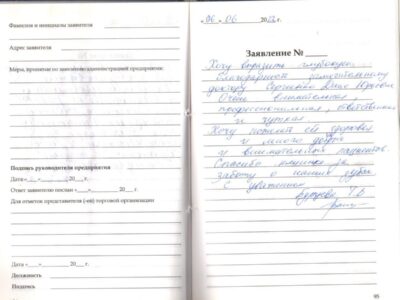 Фамилия и инициалы заявителя
Адрес заявителя
Меры, принятые по заявлению администрацией предприятия:
Подпись руководителя предприятия
Дата « » 20 г.
Ответ заявителю послан « » 20 г.
Для отметок представителя (-ей) торговой организации
Дата « » 20 г.
Должность
Подпись
« 06 » 06 20 г.
Заявление №
Хочу выразить глубокую
благодарность замечательному
доктору
Очень внимательная,
профессиональная, ответственная
и чуткая
Хочу пожелать ей здоровья
и много
и внимательных пациентов.
Спасибо за
заботу о наших зубах
С уважением
95